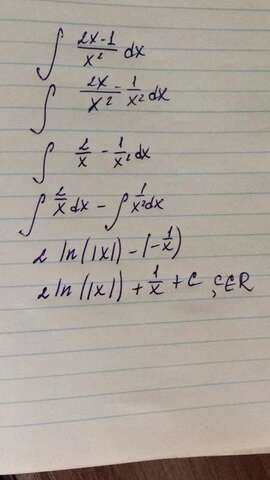 ∫ (2x-1)/x² dx
∫ 2x/x² - 1/x² dx
∫ 2/x - 1/x² dx
∫ 2/x dx - ∫ 1/x² dx
2 ln(|x|) - (-1/x)
2 ln(|x|) + 1/x + C, C∈R